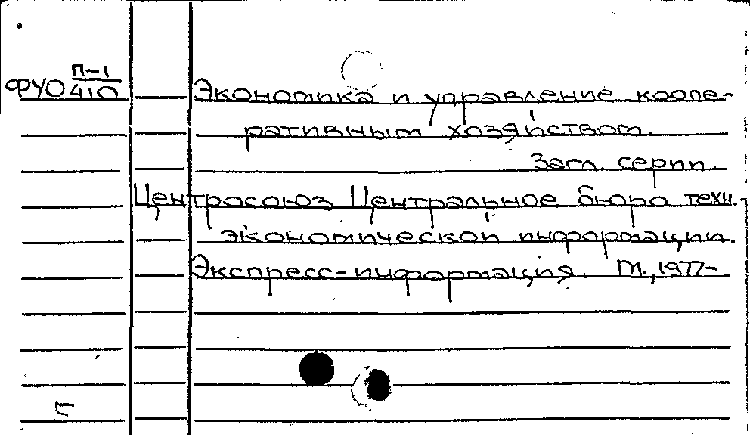 П-1
ФУО 410
Экономика и управление коопе-
ративным хозяйством.
Загл. серии.
Центросоюз Центральное бюро техн.-
экономической информации.
Экспресс-информация. М., 1977-
П